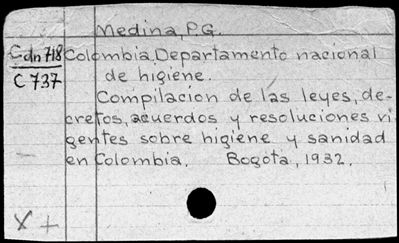 Medina, P.G.
Cdn 718 Colombia. Departamento nacional
C 737 de higiene.
Compilacion de las leyes, de-
cretos, acuerdos y resoluciones vi-
gentes sobre higiene y sanidad
en Colombia. Bogota, 1932.
X +